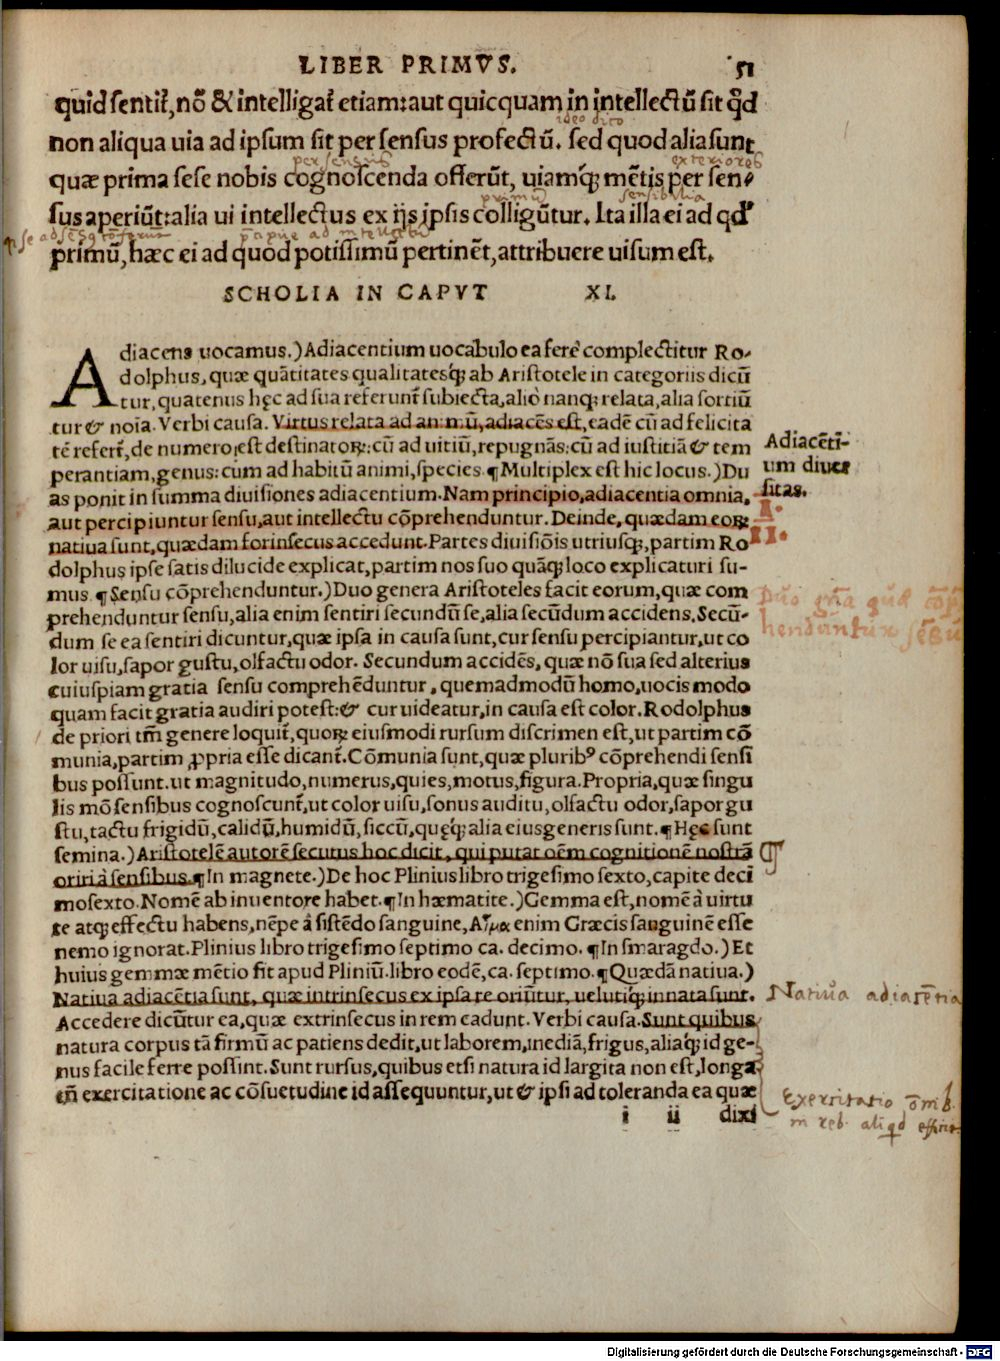 LIBER PRIMVS. 51
quid sentit̃, nõ & intelligat̃ etiam: aut quicquam in intellectũ sit q̃d
ideo dico
non aliqua uia ad ipsum sit per sensus profectũ. sed quod alia sunt
per sensus exteriores
quæ prima sese nobis cognoscenda offerũt, uiamq́; mẽtis per sen-
primũ sensibilia
sus aperiũt: alia ui intellectus ex ijs ipsis colligũtur. Ita illa ei ad qđ
primũ, hæc ei ad quod potissimũ pertinẽt, attribuere uisum est.
SCHOLIA IN CAPVT XI.
Adiacens uocamus.) Adiacentium uocabulo ea ferè complectitur Ro-
dolphus, quæ quãtitates qualitatesq́; ab Aristotele in categoriis dicũ
tur, quatenus hęc ad sua referunt̃ subiecta, alio nanq; relata, alia sortiũ
tur & noĩa. Verbi causa. Virtus relata ad animũ, adiacẽs est, eadẽ cũ ad felicita
tẽ refert̃, de numero est destinatorꝝ: cũ ad uitiũ, repugnãs: cũ ad iustitiã & tem
perantiam, genus: cum ad habitũ animi, species. ¶ Multiplex est hic locus.) Du
as ponit in summa diuisiones adiacentium. Nam principio, adiacentia omnia,
aut percipiuntur sensu, aut intellectu cõprehenduntur. Deinde, quædam eorꝝ
natiua sunt, quædam forinsecus accedunt. Partes diuisiõis utriusq;, partim Ro
dolphus ipse satis dilucide explicat, partim nos suo quãq; loco explicaturi su-
mus. ¶ Sensu cõprehenduntur.) Duo genera Aristoteles facit eorum, quæ com
prehenduntur sensu, alia enim sentiri secundũ se, alia secũdum accidens. Secũ-
dum se ea sentiri dicuntur, quæ ipsa in causa sunt, cur sensu percipiantur, ut co
lor uisu, sapor gustu, olfactu odor. Secundum accidẽs, quæ nõ sua sed alterius
cuiuspiam gratia sensu comprehẽduntur, quemadmodũ homo, uocis modo
quam facit gratia audiri potest: & cur uideatur, in causa est color. Rodolphus
de priori tm̃ genere loquit̃, quorꝝ eiusmodi rursum discrimen est, ut partim cõ
munia, partim ꝓpria esse dicant̃. Cõmunia sunt, quæ pluribꝰ cõprehendi sensi
bus possunt. ut magnitudo, numerus, quies, motus, figura. Propria, quæ singu
lis mõ sensibus cognoscunt̃, ut color uisu, sonus auditu, olfactu odor, sapor gu
stu, tactu frigidũ, calidũ, humidũ, siccũ, quęq́; alia eius generis sunt. ¶ Hęc sunt
semina.) Aristotelẽ autorẽ secutus hoc dicit, qui putat oẽm cognitionẽ nostrã
oriri à sensibus. ¶ In magnete.) De hoc Plinius libro trigesimo sexto, capite deci
mosexto. Nomẽ ab inuentore habet. ¶ In hæmatite.) Gemma est, nomẽ à uirtu
te atq; effectu habens, nẽpe à sistẽdo sanguine, Αἷμα enim Græcis sanguinẽ esse
nemo ignorat. Plinius libro trigesimo septimo ca. decimo. ¶ In smaragdo.) Et
huius gemmæ mẽtio fit apud Pliniũ. libro eodẽ, ca. septimo. ¶ Quædã natiua.)
Natiua adiacẽtia sunt, quæ intrinsecus ex ipsa re oriũtur, uelutiq́; innata sunt.
Accedere dicũtur ea, quæ extrinsecus in rem cadunt. Verbi causa. Sunt quibus
natura corpus tã firmũ ac patiens dedit, ut laborem, inediã, frigus, aliaq; id ge-
nus facile ferre possint. Sunt rursus, quibus etsi natura id largita non est, longa
tñ exercitatione ac cõsuetudine id assequuntur, ut & ipsi ad toleranda ea quæ
i ii dixi
Adiacẽti-
um diuer
sitas.
I.
II.
Natiua adiacẽtia
Exercitatio õnib.
in reb. aliqd efficit.
Digitalisierung gefördert durch die Deutsche Forschungsgemeinschaft - DFG